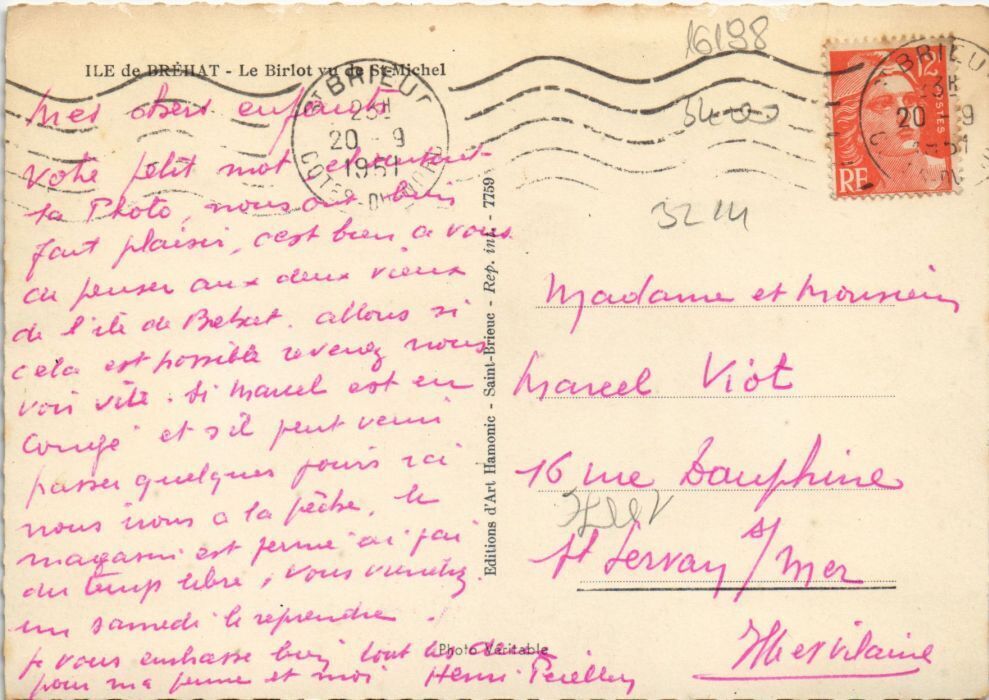 16198
ILE de BRÉHAT - Le Birlot vu de St-Michel
ST BRIEUC
23H
20 - 9
1951
COTES DU NORD
BRIEUC
20 - 9
1951
12
POSTES
RF
3214
Mes chers enfants
Votre petit mot contenant
la Photo, nous ont bien
fait plaisir, c'est bien a vous
de penser aux deux vieux
de l'ile de Brehat. allons si
cela est possible revenez nous
voir vite. Si Marcel est en
Congé et s'il peut venir
passer quelques jours ici
nous irons a la pêche, le
magasin est fermé ai j'ai
du temps libre, vous viendrez
un samedi le reprendre.
je vous embrasse bien tout les deux
pour ma femme et moi Henri
Editions d'Art Hamonic - Saint-Brieuc - Rep. int. - 7759
Photo Véritable
Madame et Monsieur
Marcel Viot
16 rue Dauphine
St Servan s/ Mer
Ille et Vilaine